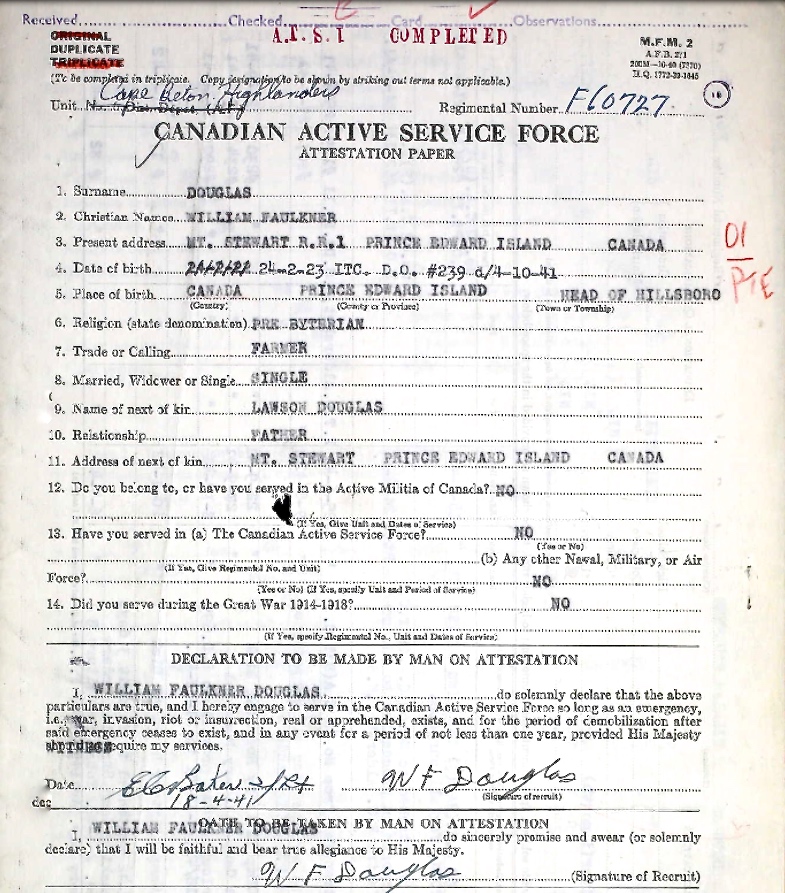 Received Checked Card Observations
A.T.S.1 COMPLETED
ORIGINAL
DUPLICATE
TRIPLICATE
M.F.M. 2
A.F.B. 2/1
200M—10-40 (7370)
H.Q. 1772-39-1645
(To be completed in triplicate. Copy designation to be shown by striking out terms not applicable.)
Cape Breton Highlanders
Unit No. Dist. Depot (A.F.) Regimental Number F60727 16
CANADIAN ACTIVE SERVICE FORCE
ATTESTATION PAPER
1. Surname DOUGLAS
2. Christian Names WILLIAM FAULKNER
3. Present address MT. STEWART R.R.1 PRINCE EDWARD ISLAND CANADA
01
PTE
4. Date of birth 24-2-23 ITC. D.O. #239 d/4-10-41
5. Place of birth CANADA PRINCE EDWARD ISLAND HEAD OF HILLSBORO
(Country) (County or Province) (Town or Township)
6. Religion (state denomination) PRE BYTERIAN
7. Trade or Calling FARMER
8. Married, Widower or Single SINGLE
9. Name of next of kin LAWSON DOUGLAS
10. Relationship FATHER
11. Address of next of kin MT. STEWART PRINCE EDWARD ISLAND CANADA
12. Do you belong to, or have you served in the Active Militia of Canada? NO
(If Yes, Give Unit and Dates of Service)
13. Have you served in (a) The Canadian Active Service Force? NO
(Yes or No)
(b) Any other Naval, Military, or Air
(If Yes, Give Regimental No. and Unit)
Force? NO
(Yes or No) (If Yes, specify Unit and Period of Service)
14. Did you serve during the Great War 1914-1918? NO
(If Yes, specify Regimental No., Unit and Dates of Service)
DECLARATION TO BE MADE BY MAN ON ATTESTATION
I, WILLIAM FAULKNER DOUGLAS do solemnly declare that the above
particulars are true, and I hereby engage to serve in the Canadian Active Service Force so long as an emergency,
i.e., war, invasion, riot or insurrection, real or apprehended, exists, and for the period of demobilization after
said emergency ceases to exist, and in any event for a period of not less than one year, provided His Majesty
should so require my services.
WITNESS
Date E C Baker 2/Lt W F Douglas
18-4-41 (Signature of recruit)
dec
OATH TO BE TAKEN BY MAN ON ATTESTATION
I, WILLIAM FAULKNER DOUGLAS do sincerely promise and swear (or solemnly
declare) that I will be faithful and bear true allegiance to His Majesty.
W F Douglas (Signature of Recruit)